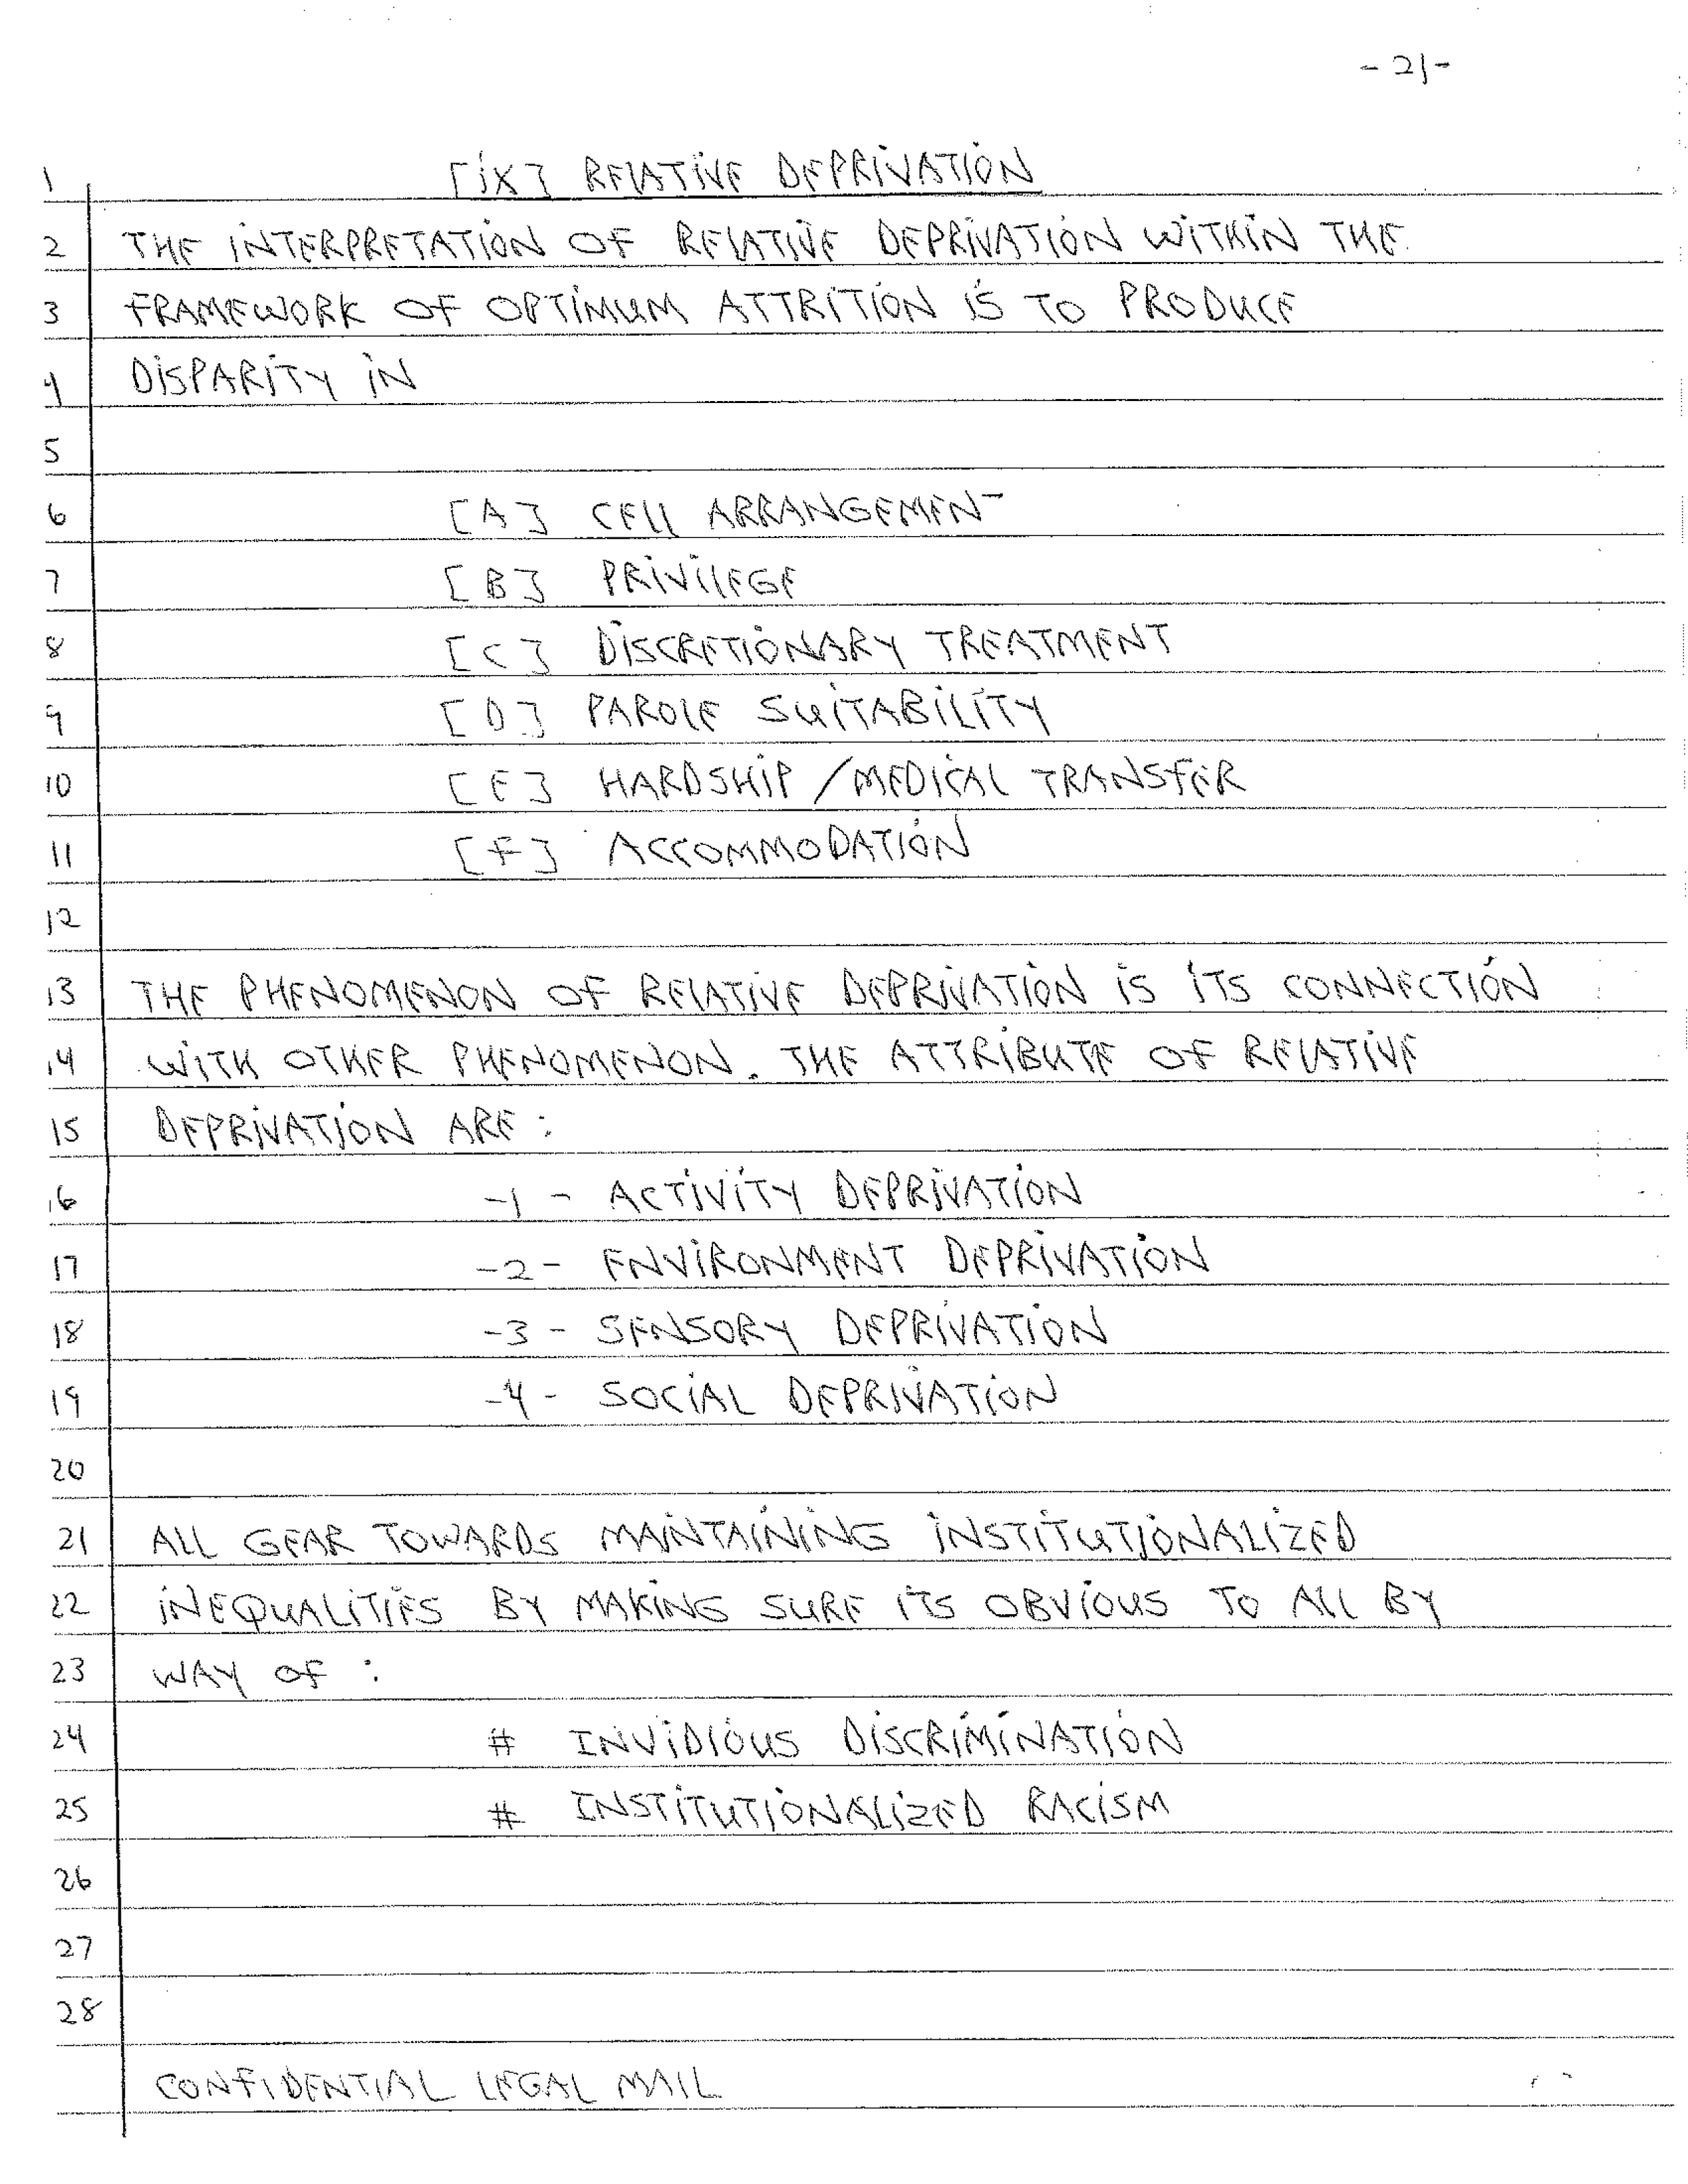 - 21 -
1 [iX] RELATIVE DEPRIVATION
2 THE INTERPRETATION OF RELATIVE DEPRIVATION WITHIN THE
3 FRAMEWORK OF OPTIMUM ATTRITION IS TO PRODUCE
4 DISPARITY IN
5
6 [A] CELL ARRANGEMENT
7 [B] PRIVILEGE
8 [C] DISCRETIONARY TREATMENT
9 [D] PAROLE SUITABILITY
10 [E] HARDSHIP / MEDICAL TRANSFER
11 [F] ACCOMMODATION
12
13 THE PHENOMENON OF RELATIVE DEPRIVATION IS ITS CONNECTION
14 WITH OTHER PHENOMENON. THE ATTRIBUTE OF RELATIVE
15 DEPRIVATION ARE :
16 -1- ACTIVITY DEPRIVATION
17 -2- ENVIRONMENT DEPRIVATION
18 -3- SENSORY DEPRIVATION
19 -4- SOCIAL DEPRIVATION
20
21 ALL GEAR TOWARDS MAINTAINING INSTITUTIONALIZED
22 INEQUALITIES BY MAKING SURE ITS OBVIOUS TO ALL BY
23 WAY OF :
24 # INVIDIOUS DISCRIMINATION
25 # INSTITUTIONALIZED RACISM
26
27
28
CONFIDENTIAL LEGAL MAIL